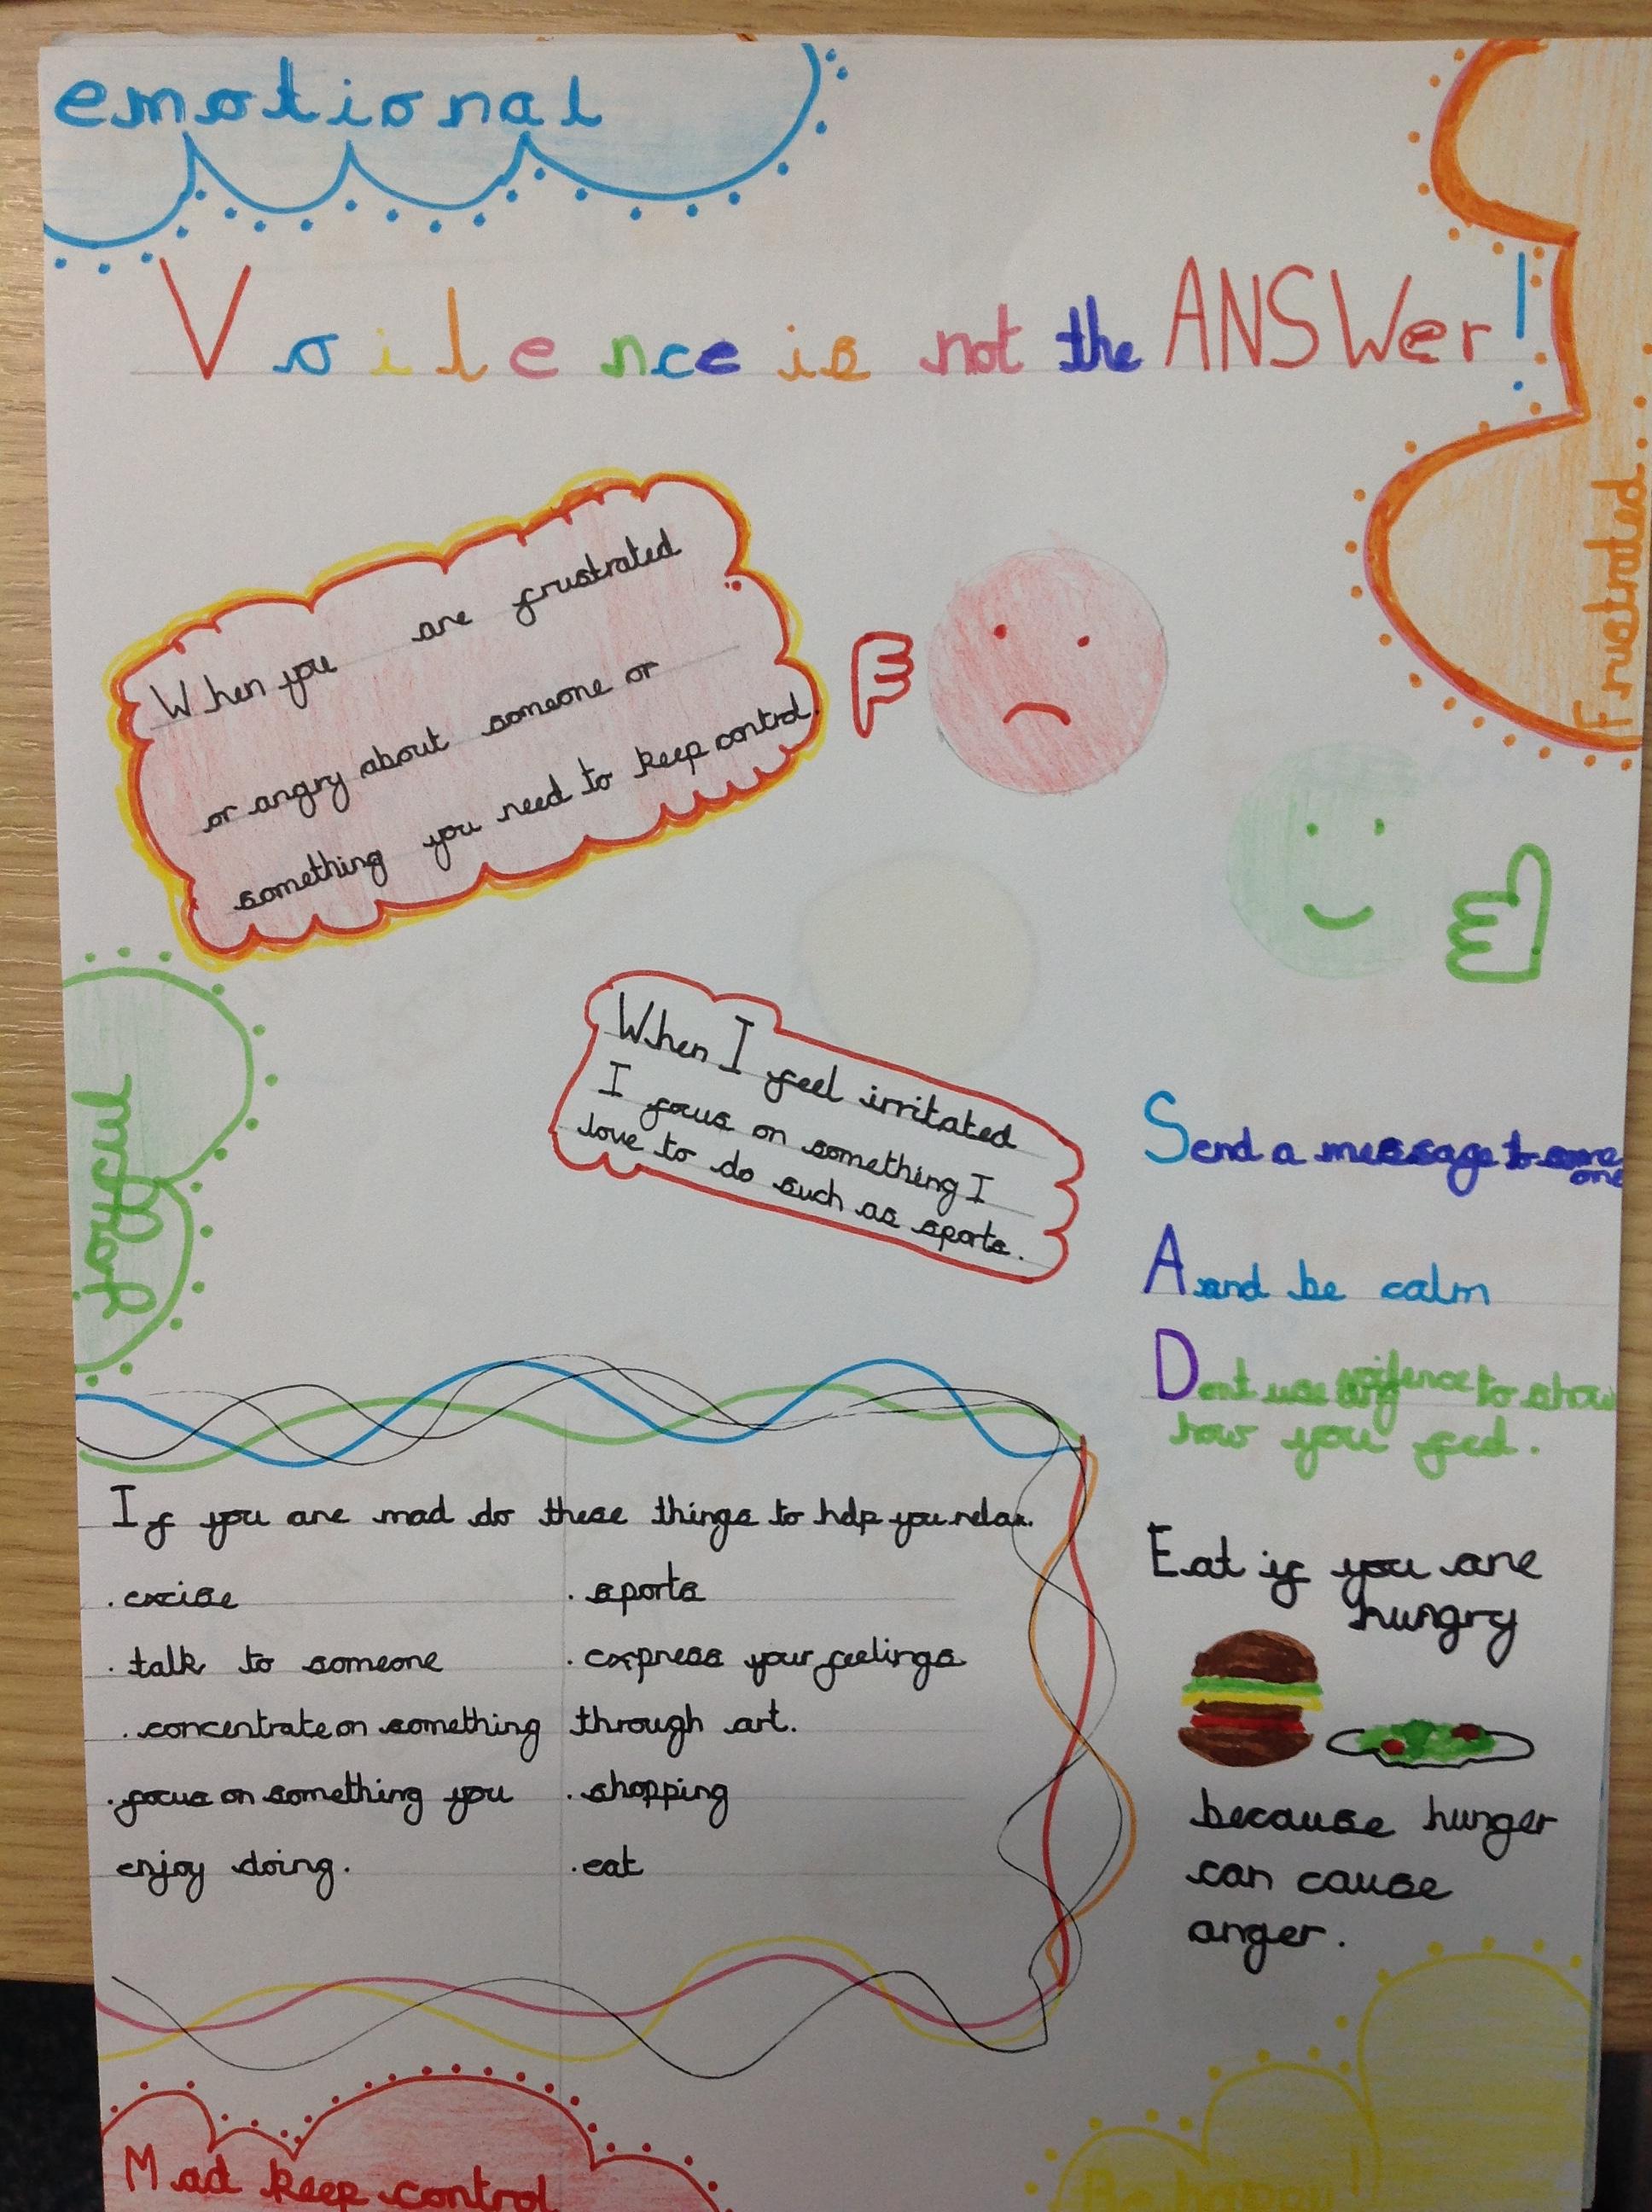 emotional
Voilence is not the ANSWer!
Frustrated...
When you are frustrated
or angry about someone or
something you need to keep control.
When I feel irritated
I focus on something I
love to do such as sports.
Joyful
Send a message to some
one
Aand be calm
Dont use any voilence to show
how you feel.
If you are mad do these things to help you relax.
. excise
. talk to someone
. concentrate on something
. focus on something you
enjoy doing.
. sports
. express your feelings
through art.
. shopping
. eat
Eat if you are
hungry
because hunger
can cause
anger.
Mad keep control
Be happy!